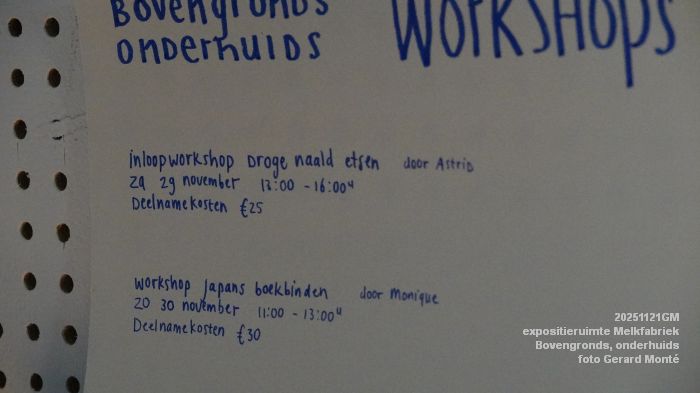 Bovengronds
onderhuids
Workshops
inloopworkshop Droge naald etsen door Astrid
za 29 november 13:00 - 16:00u
Deelnamekosten €25
workshop Japans boekbinden door Monique
zo 30 november 11:00 - 13:00u
Deelnamekosten €30
20251121GM
expositieruimte Melkfabriek
Bovengronds, onderhuids
foto Gerard Monté